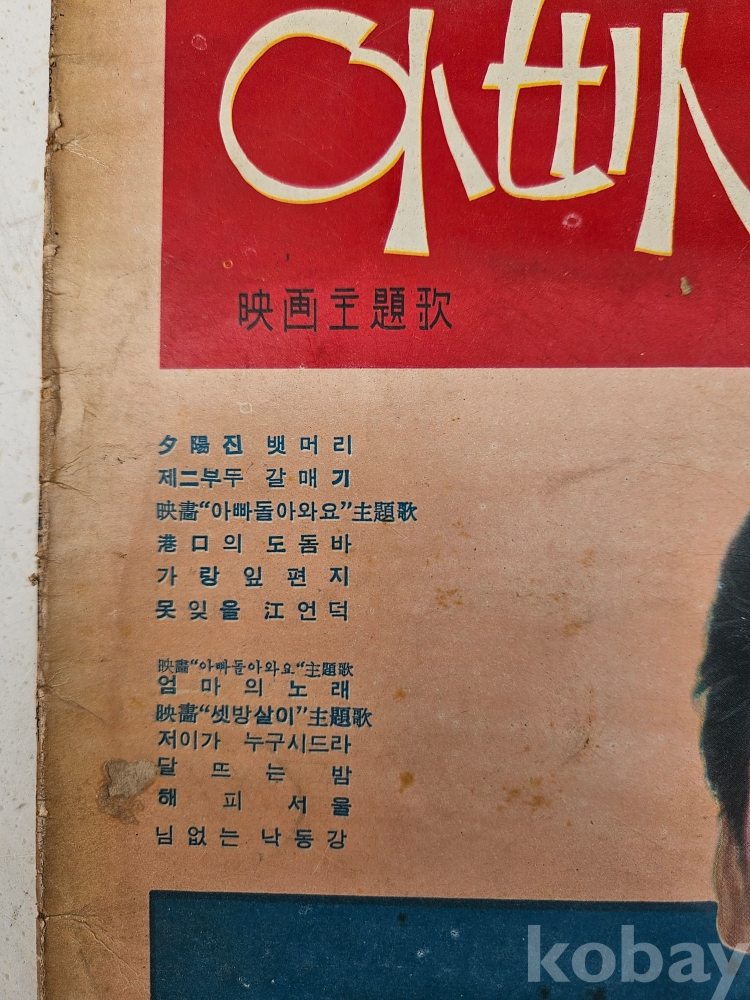 아빠
映画主題歌
夕陽진 뱃머리
제二부두 갈매기
映畵“아빠돌아와요”主題歌
港口의 도돔바
가랑잎 편지
못잊을 江언덕
映畵“아빠돌아와요“主題歌
엄마의 노래
映畵“셋방살이”主題歌
저이가 누구시드라
달 뜨는 밤
해피 서울
님없는 낙동강
kobay